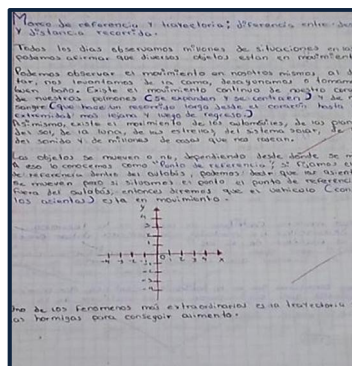 Marco de referencia y trayectoria; diferencia entre des
y distancia recorrida.
Todos los días observamos millones de situaciones en las
podemos afirmar que diversos objetos estan en movimient
Podemos observar el movimiento en nosotros mismos, al
tar, nos levantamos de la cama, desayunamos o tomamos
buen baño. Existe el movimiento continuo de nuestro cora
de nuestros pulmones (se expanden y se contraen) y de
sangre (que hace un recorrido largo desde el corazón hasta
extremidad más lejana y luego de regreso)
Asimismo, existe el movimiento de los automóviles, de los plan
del sol, de la luna, de las estrellas, del sistema solar, de
del sonido y de millones de cosas que nos rodean.
Los objetos se mueven o no, dependiendo desde dónde se m
a eso lo conocemos como "Punto de referencia"; si fijamos e
de referencia dentro del autobús, podemos decir que los asien
se mueven pero si situamos el punto de referenc
fuera del autobús, entonces diremos que el vehículo (con
los asientos) está en movimiento.
y
-4 -3 -2 -1 0 1 2 3 4 x
Uno de los fenomenos más extraordinarios es la trayectoria
las hormigas para conseguir alimento.